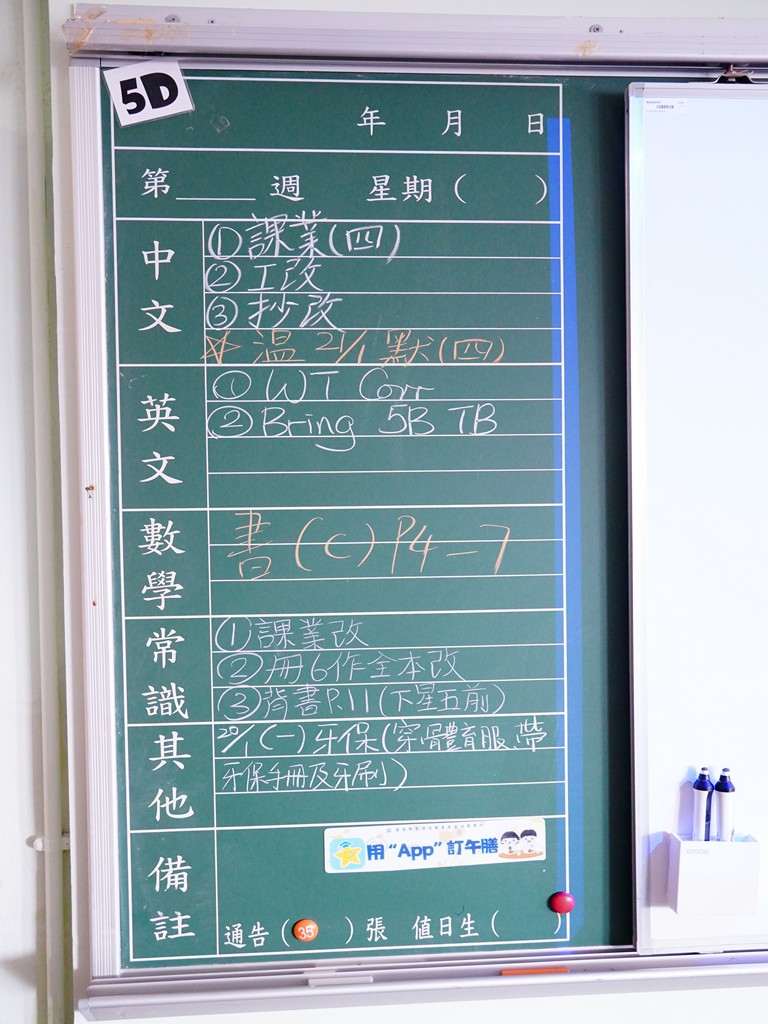 5D
年 月 日
第____週 星期( )
中文
①課業(四)
②工改
③抄改
☆温 21/1 默(四)
英文
① WT Corr
② Bring 5B TB
數學
書(C)P4-7
常識
①課業改
②冊6作全本改
③背書P.11(下星五前)
其他
20/1(一)牙保(穿體育服、帶
牙保手冊及牙刷)
備註
用“App”訂午膳
通告( 35 )張 值日生( )